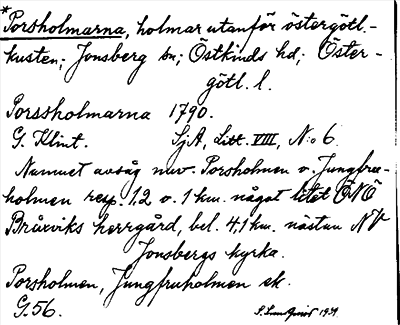 *Porsholmarna, holmar utanför östergötl.-
kusten; Jonsberg sn; Östkinds hd; Öster-
götl. l.
Porssholmarna 1790.
G. Klint. SjA, Litt. VIII, N:o 6.
Namnet avsåg nuv. Porsholmen o. Jungfru-
holmen resp. 1,2 o. 1 km. något litet ÖNÖ
Bråxviks herrgård, bel. 4,1 km. nästan NV
Jonsbergs kyrka.
Porsholmen, Jungfruholmen ek.
G. 56.